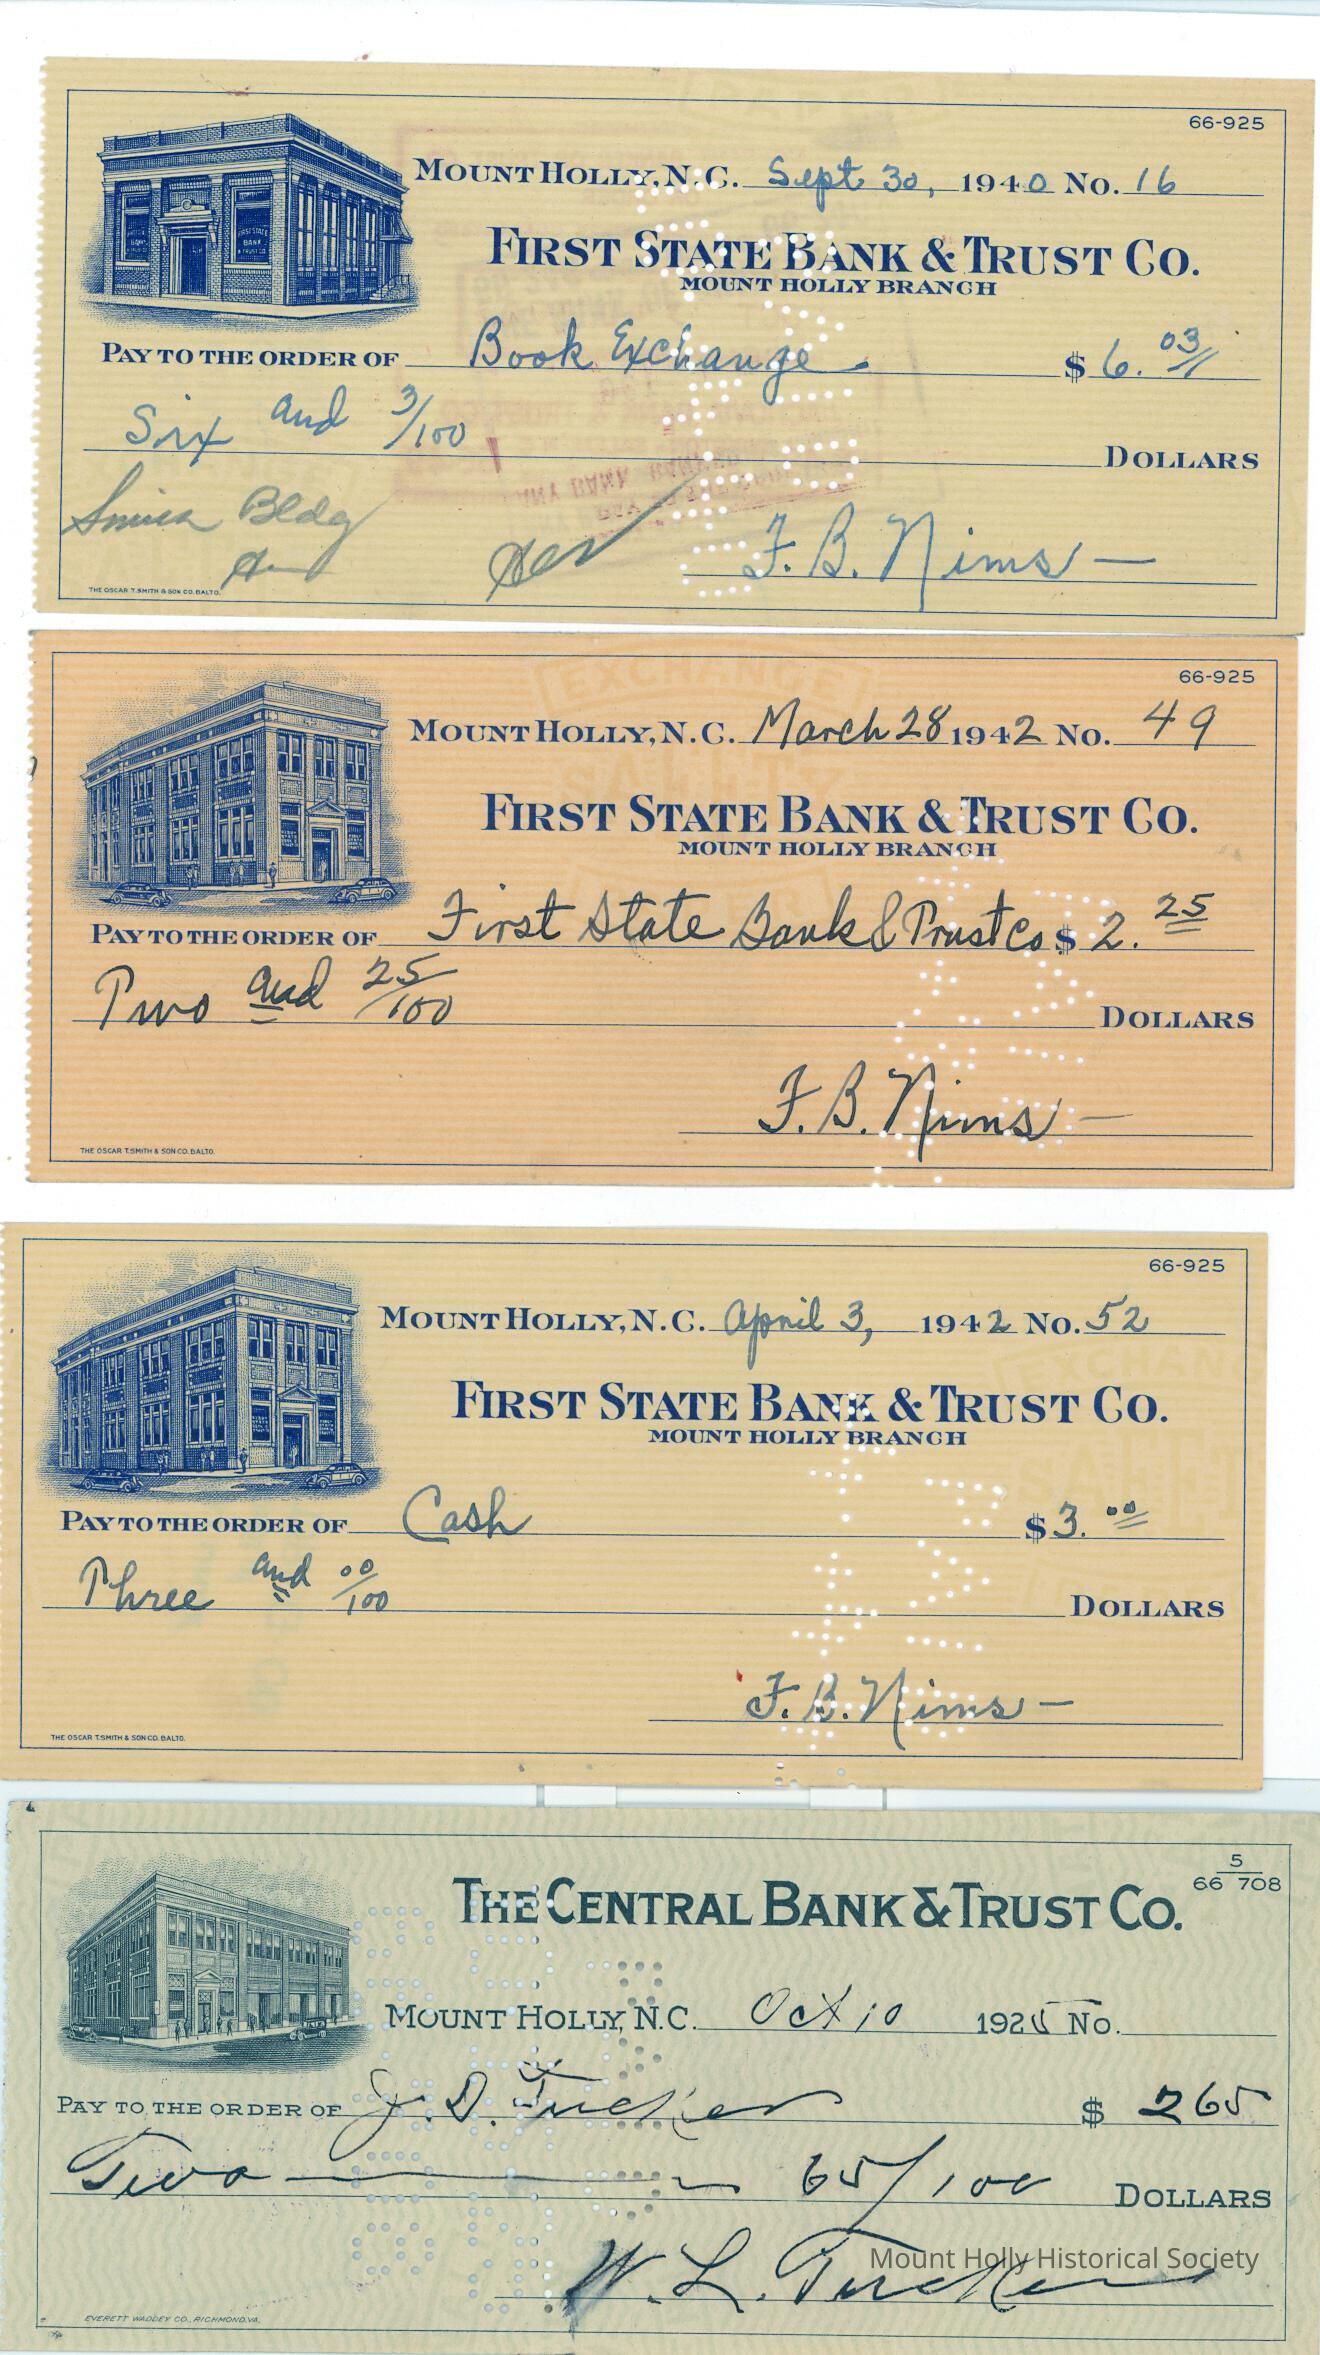 66-925
MOUNT HOLLY, N.C. Sept 30, 1940 No. 16
FIRST STATE BANK & TRUST CO.
MOUNT HOLLY BRANCH
PAY TO THE ORDER OF Book Exchange $ 6. 03
Six and 3/100 DOLLARS
Bldg
F. B. Nims
THE OSCAR T. SMITH & SON CO. BALTO.
EXCHANGE
66-925
MOUNT HOLLY, N.C. March 28 1942 No. 49
SAFETY
FIRST STATE BANK & TRUST CO.
MOUNT HOLLY BRANCH
PAY TO THE ORDER OF First State Bank & Trust Co $ 2. 25
Two and 25/100 DOLLARS
F. B. Nims
THE OSCAR T. SMITH & SON CO. BALTO.
66-925
MOUNT HOLLY, N.C. April 3, 1942 No. 52
FIRST STATE BANK & TRUST CO.
MOUNT HOLLY BRANCH
PAY TO THE ORDER OF Cash $ 3. 00
Three and 00/100 DOLLARS
F. B. Nims
THE OSCAR T. SMITH & SON CO. BALTO.
5
66 708
THE CENTRAL BANK & TRUST CO.
MOUNT HOLLY, N.C. Oct 10 1925 No.
PAY TO THE ORDER OF J. D. Tucker $ 265
Two 65/100 DOLLARS
W. L. Tucker
Mount Holly Historical Society
EVERETT WADDEY CO., RICHMOND, VA.